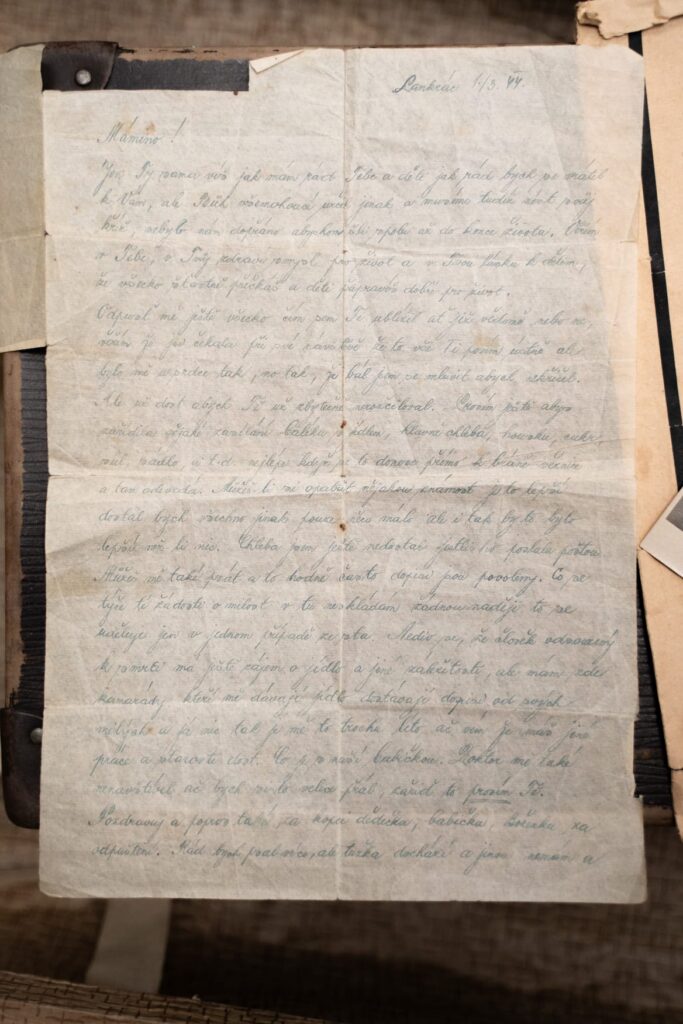 Pankrác 1./3. 44.
Mámino!
Ty sama víš jak mám rád Tebe a děti jak rád bych se vrátil
k Vám, ale Bůh všemohoucí jinak a musíme tudíž nést svůj
kříž, nebylo nám dopřáno abychom žili spolu až do konce života. Věřím
v Tebe, v Tvůj zdravý smysl pro život a v Tvou lásku k dětem,
že všecko šťastně přečkáš a děti připravíš dobře pro život.
Odpusť mě ještě všecko čím jsem Ti ublížil ať již vědomě nebo ne,
vím že jsi čekala při své návštěvě že to vše Ti povím ústně ale
bylo mě u srdce tak, no tak, že bál jsem se mluvit abych
Ale už dost abych Tě už zbytečně nerozčiloval. Prosím ještě abys
zařídila nějaké zasílání balíku s jídlem, hlavně chleba, cukr
sůl, sádlo, a t.d. nejlépe když se to donese přímo k bráně věznice
a tam odevzdá. Můžeš-li si opatřit nějakou známost je to lepší
dostal bych všechno jinak pouze něco málo ale i tak by to bylo
lepší než-li nic. Chleba jsem ještě nedostal jestliže jsi poslala poštou.
Můžeš mě také psát a to hodně často dopisy jsou povoleny. Co se
týče té žádosti o milost v tu neskládám žádnou naději to se
v jednom případě ze sta. Nediv se, že člověk odsouzený
k smrti má ještě zájem o jídlo a jiné záležitosti, ale mám zde
kamarády kteří mě dávají jídlo dostávají dopisy od svých
milých a já nic tak je mě to trochu líto ač vím že máš jiné
práce a starosti dost. Co je s naší babičkou. Doktor mě také
nenavštívil ač bych si to velice přál, zařiď to prosím Tě.
Pozdravuj a popros také za dědečka, babičku, za
odpuštění. Rád bych psal více, ale tužka dochází a jinou nemám a